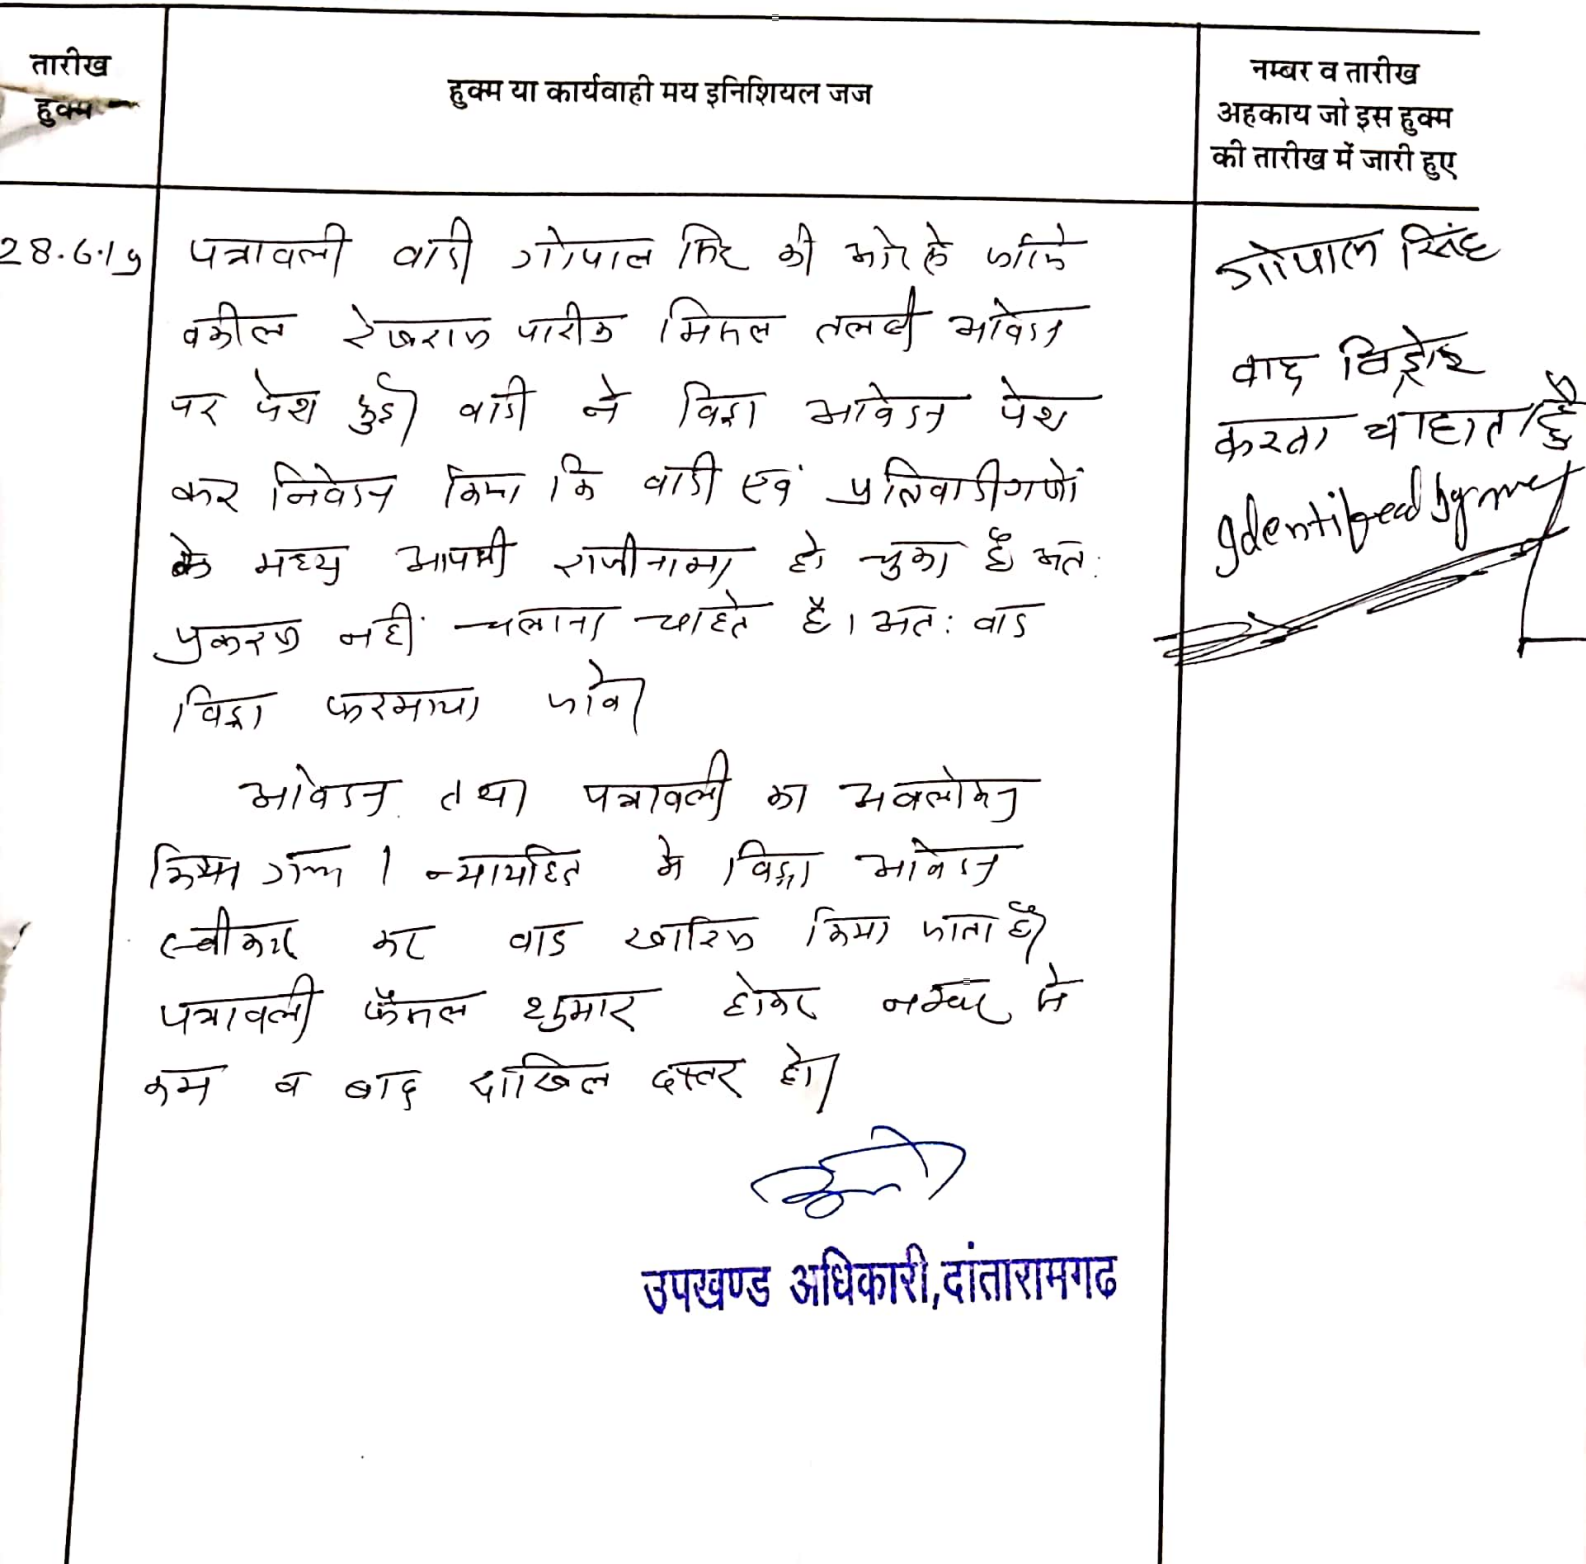 तारीख
हुक्म
हुक्म या कार्यवाही मय इनिशियल जज
नम्बर व तारीख
अहकाय जो इस हुक्म
की तारीख में जारी हुए
28.6.19
पत्रावली वादी गोपाल सिंह की ओर से जरिये
वकील पारीक मिसल तलबी आवेदन
पर पेश हुई। वादी ने विड्रा आवेदन पेश
कर निवेदन किया कि वादी एवं प्रतिवादीगणों
के मध्य आपसी राजीनामा हो चुका है अत:
प्रकरण नहीं चलाना चाहते है। अत: वाद
विड्रा फरमाया जावे।
आवेदन तथा पत्रावली का अवलोकन
किया गया। न्यायहित में विड्रा आवेदन
स्वीकार कर वाद खारिज किया जाता है।
पत्रावली फैसल शुमार होकर नम्बर से
कम व बाद दाखिल दफ्तर हो।
उपखण्ड अधिकारी,दांतारामगढ
गोपाल सिंह
वाद विड्रोह
करना चाहता है
Identified by me